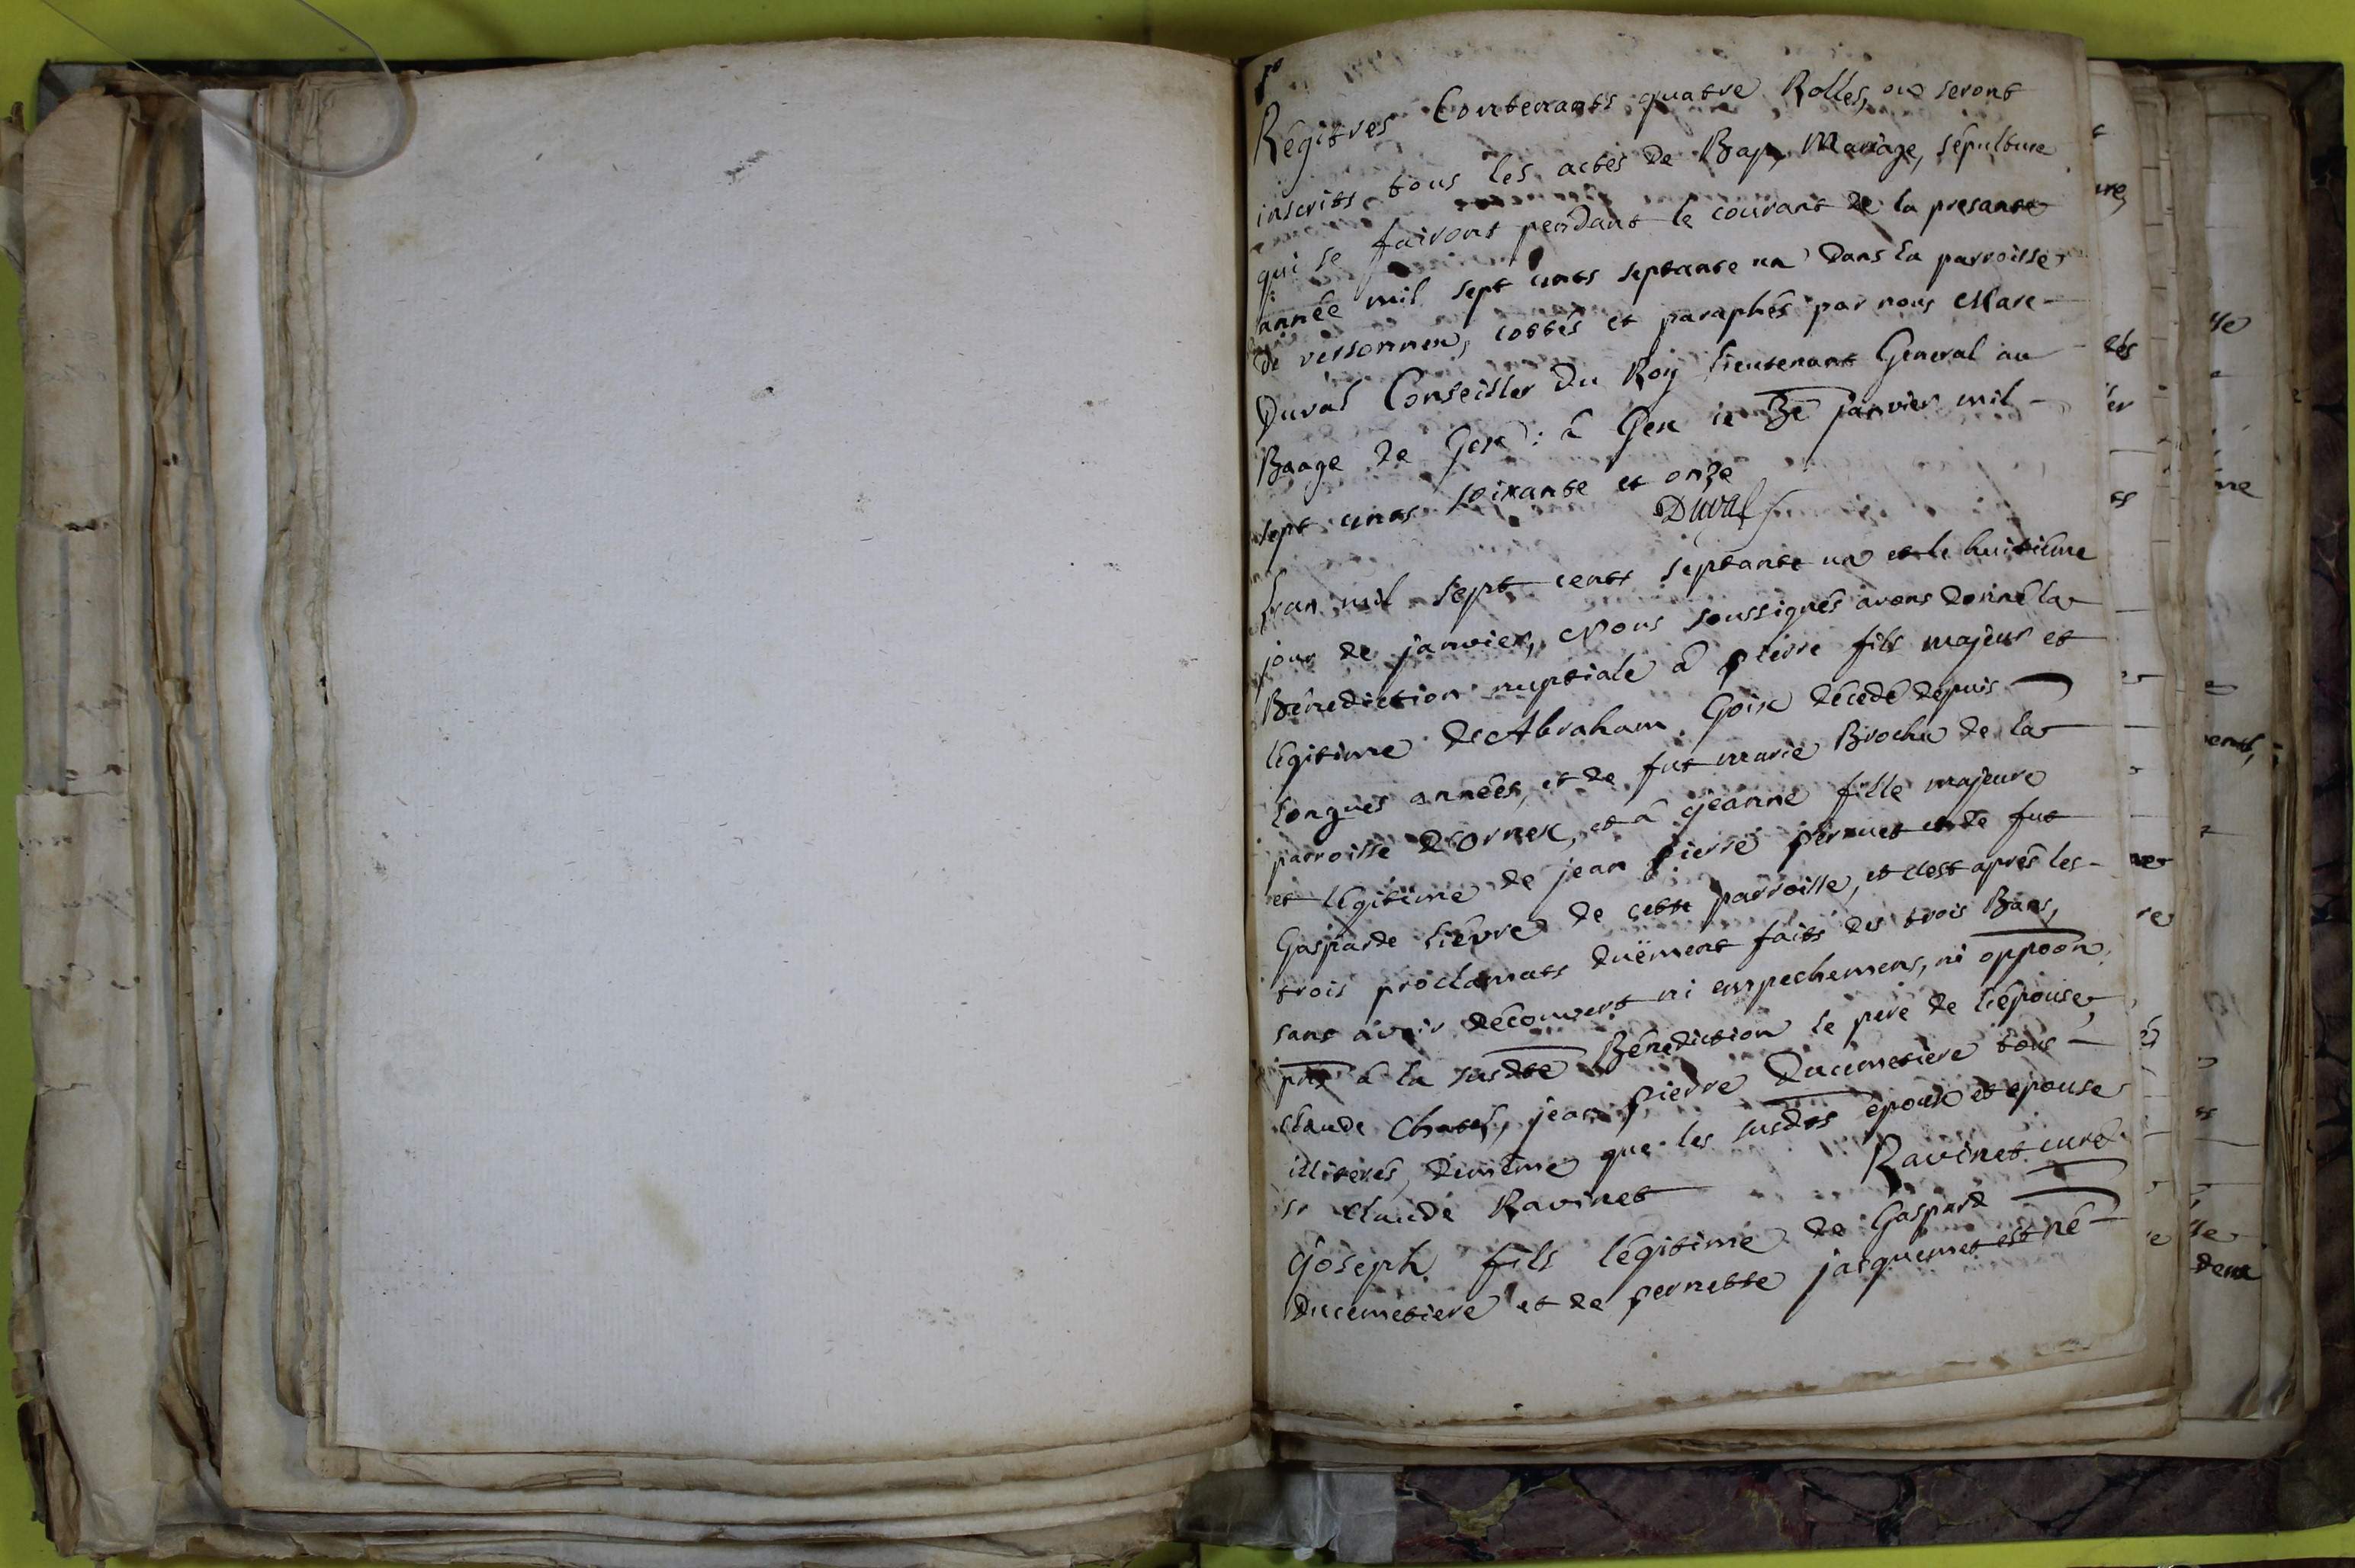 1e
Régitres Contenants quatre Rolles, où seront
inscrits tous les actes de Bap, Mariage, sépulture
qui se fairont pendant le courant de la presante
année mil sept cents septante un dans la parroisse
de versonnex, cottés et paraphés par nous Marc
Duval Conseiller Du Roy Lieutenant General au
Baage de Gex : à Gex ce 3e janvier mil
sept cents soixante et onze
Duval
L'an mil sept cents septante un et le huitième
jour de janvier, Nous soussignés avons donné la
Bénediction nuptiale à pierre fils majeur et
légitime de Abraham Goix décedé depuis
longues années, et de fut marie Brochu de la
parroisse d'Ornex, et à jeanne fille majeure
et légitime de jean pierre pernet et de fut
Gasparde Lièvre de cette parroisse, et c'est après les
trois proclamats duëment faits des trois Bans,
sans avoir découvert ni empechemens, ni oppoon,
pnt à la susdte Bénediction le pere de l'épouse,
Claude Chatel, jean pierre Ducimetiere tous
illiterés, demême que les susdts époux et epouse
sr Claude Ravinet Ravinet curé
Joseph fils légitime de Gaspard
Ducimetiere et de pernette jacquemet est né